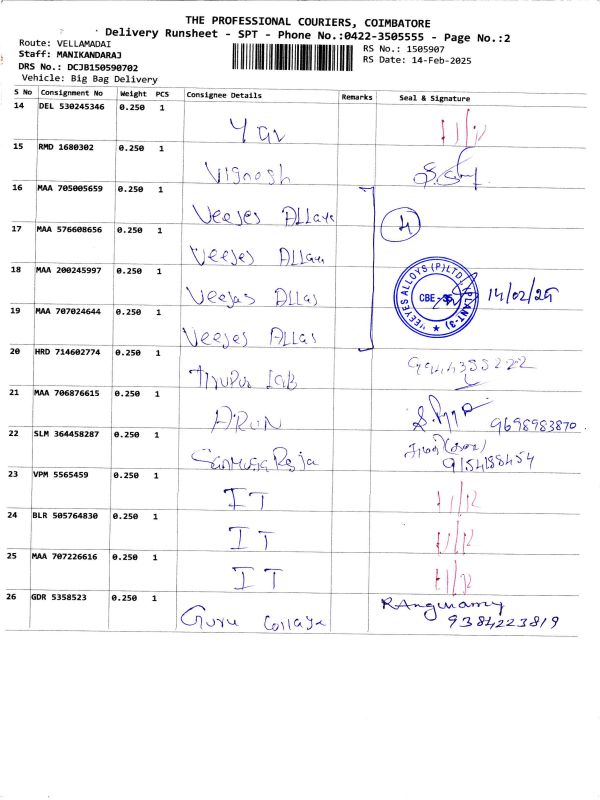 THE PROFESSIONAL COURIERS, COIMBATORE
Delivery Runsheet - SPT - Phone No.:0422-3505555 - Page No.:2
Route: VELLAMADAI
RS No.: 1505907
Staff: MANIKANDARAJ
RS Date: 14-Feb-2025
DRS No.: DCJB150590702
Vehicle: Big Bag Delivery
S No Consignment No Weight PCS Consignee Details Remarks Seal & Signature
14 DEL 530245346 0.250 1
15 RMD 1680302 0.250 1 Vignesh
16 MAA 705005659 0.250 1 Veejes Alloys
4
17 MAA 576608656 0.250 1 Veejes
18 MAA 200245997 0.250 1 Veejas Allas
VEEYES ALLOYS (P) LTD. (PLANT-3) ★ CBE-35
14/02/25
19 MAA 707024644 0.250 1 Veejes Allas
20 HRD 714602774 0.250 1 Tirupur Lab
21 MAA 706876615 0.250 1 ARUN
9698983870
22 SLM 364458287 0.250 1 Sanmuga Raja
9154188454
23 VPM 5565459 0.250 1 IT
24 BLR 505764830 0.250 1 IT
25 MAA 707226616 0.250 1 IT
26 GDR 5358523 0.250 1 Guru Collage
9384223819